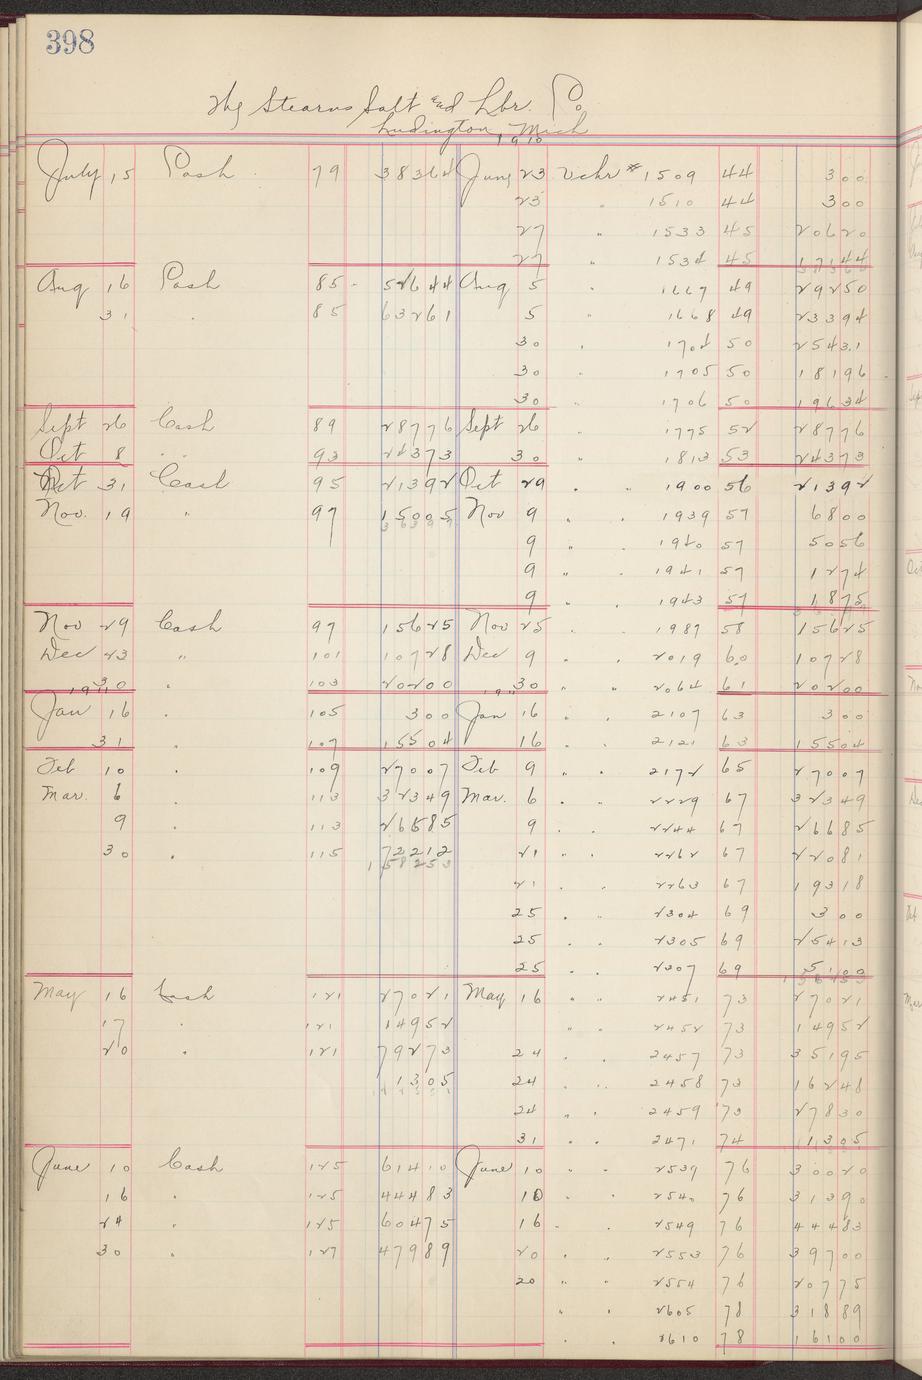 398
The Stearns Salt and Lbr. Co.
Ludington, Mich
1910
July 15 Cash 79 38364 June 23 Vchr # 1509 44 300
23 " 1510 44 300
27 " 1533 45 20620
27 " 1534 45 17144
Aug 16 Cash 85 52644 Aug 5 " 1667 49 29250
31 " 85 63261 5 " 1668 49 23394
30 " 1704 50 25431
30 " 1705 50 18196
30 " 1706 50 19634
Sept 26 Cash 89 28776 Sept 26 " 1775 52 28776
Oct 8 " 93 24373 30 " 1813 53 24373
Oct 31 Cash 95 21392 Oct 29 " " 1900 56 21392
Nov. 19 " 97 15005 Nov 9 " " 1939 57 6800
9 " " 1940 57 5056
9 " " 1941 57 1274
9 " " 1943 57 1875
Nov 29 Cash 97 15625 Nov 25 " 1987 58 15625
Dec 23 " 101 10728 Dec 9 " " 2019 60 10728
30 " 103 20200 30 " " 2064 61 20200
1911 1911
Jan 16 " 105 300 Jan 16 " " 2107 63 300
31 " 107 15504 16 " " 2121 63 15504
Feb 10 " 109 27007 Feb 9 " " 2172 65 27007
Mar. 6 " 113 32349 Mar. 6 " " 2229 67 32349
9 " 113 26685 9 " " 2244 67 26685
30 " 115 72212 21 " " 2262 67 22081
158253
21 " " 2263 67 19318
25 " " 2304 69 300
25 " " 2305 69 25413
25 " " 2307 69 5100
May 16 Cash 121 27021 May 16 " " 2451 73 27021
17 " 121 14952 " " 2452 73 14952
20 " 121 79273 24 " " 2457 73 35195
11305 24 " " 2458 73 16248
24 " " 2459 73 27830
31 " " 2471 74 11305
June 10 Cash 125 61410 June 10 " " 2539 76 30020
16 " 125 44483 10 " " 2540 76 31390
24 " 125 60475 16 " " 2549 76 44483
30 " 127 47989 20 " " 2553 76 39700
20 " " 2554 76 20775
" " 2605 78 31889
" " 2610 78 16100